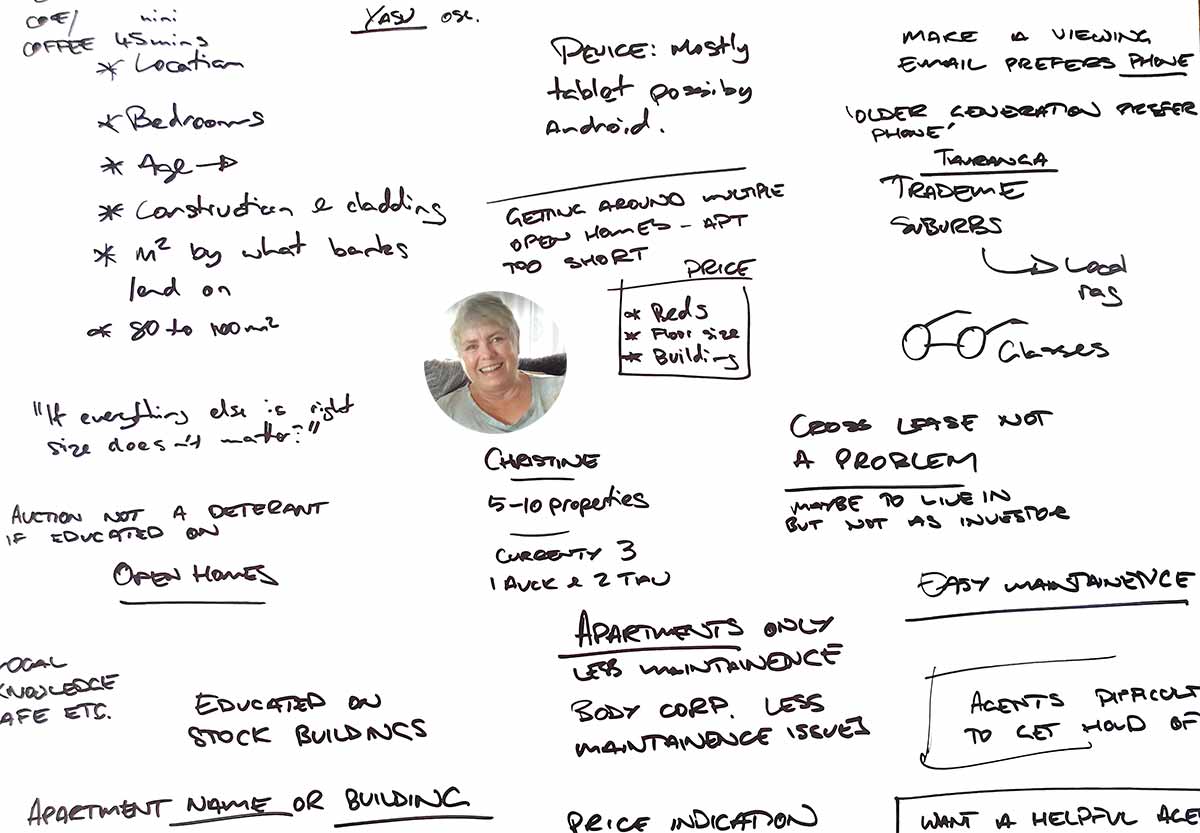 COFFEE 45mins
nini
* Location
* Bedrooms
* Age →
* Construction & cladding
* M² by what banks
lend on
* 80 to 100m²
"If everything else is right
size doesn't matter?"
AUCTION NOT A DETERANT
IF EDUCATED ON
OPEN HOMES
OCAL
KNOWLEDGE
AFE ETC.
EDUCATED ON
STOCK BUILDINGS
APARTMENT NAME OR BUILDING
DEVICE: Mostly
tablet possiby
Android.
GETTING AROUND MULTIPLE
OPEN HOMES - APT
TOO SHORT
PRICE
* Beds
* Floor size
* Building
CHRISTINE
5-10 properties
CURRENTY 3
1 AUCK & 2 TAU
APARTMENTS ONLY
LESS MAINTAINENCE
BODY CORP. LESS
MAINTAINENCE ISSUES
PRICE INDICATION
MAKE A VIEWING
EMAIL PREFERS PHONE
'OLDER GENERATION PREFER
PHONE'
TAURANGA
TRADEME
SUBURBS
Local
rag
Glasses
CROSS LEASE NOT
A PROBLEM
MAYBE TO LIVE IN
BUT NOT AS INVESTOR
EASY MAINTAINENCE
AGENTS DIFFICULT
TO GET HOLD OF
WANT A HELPFUL AGE